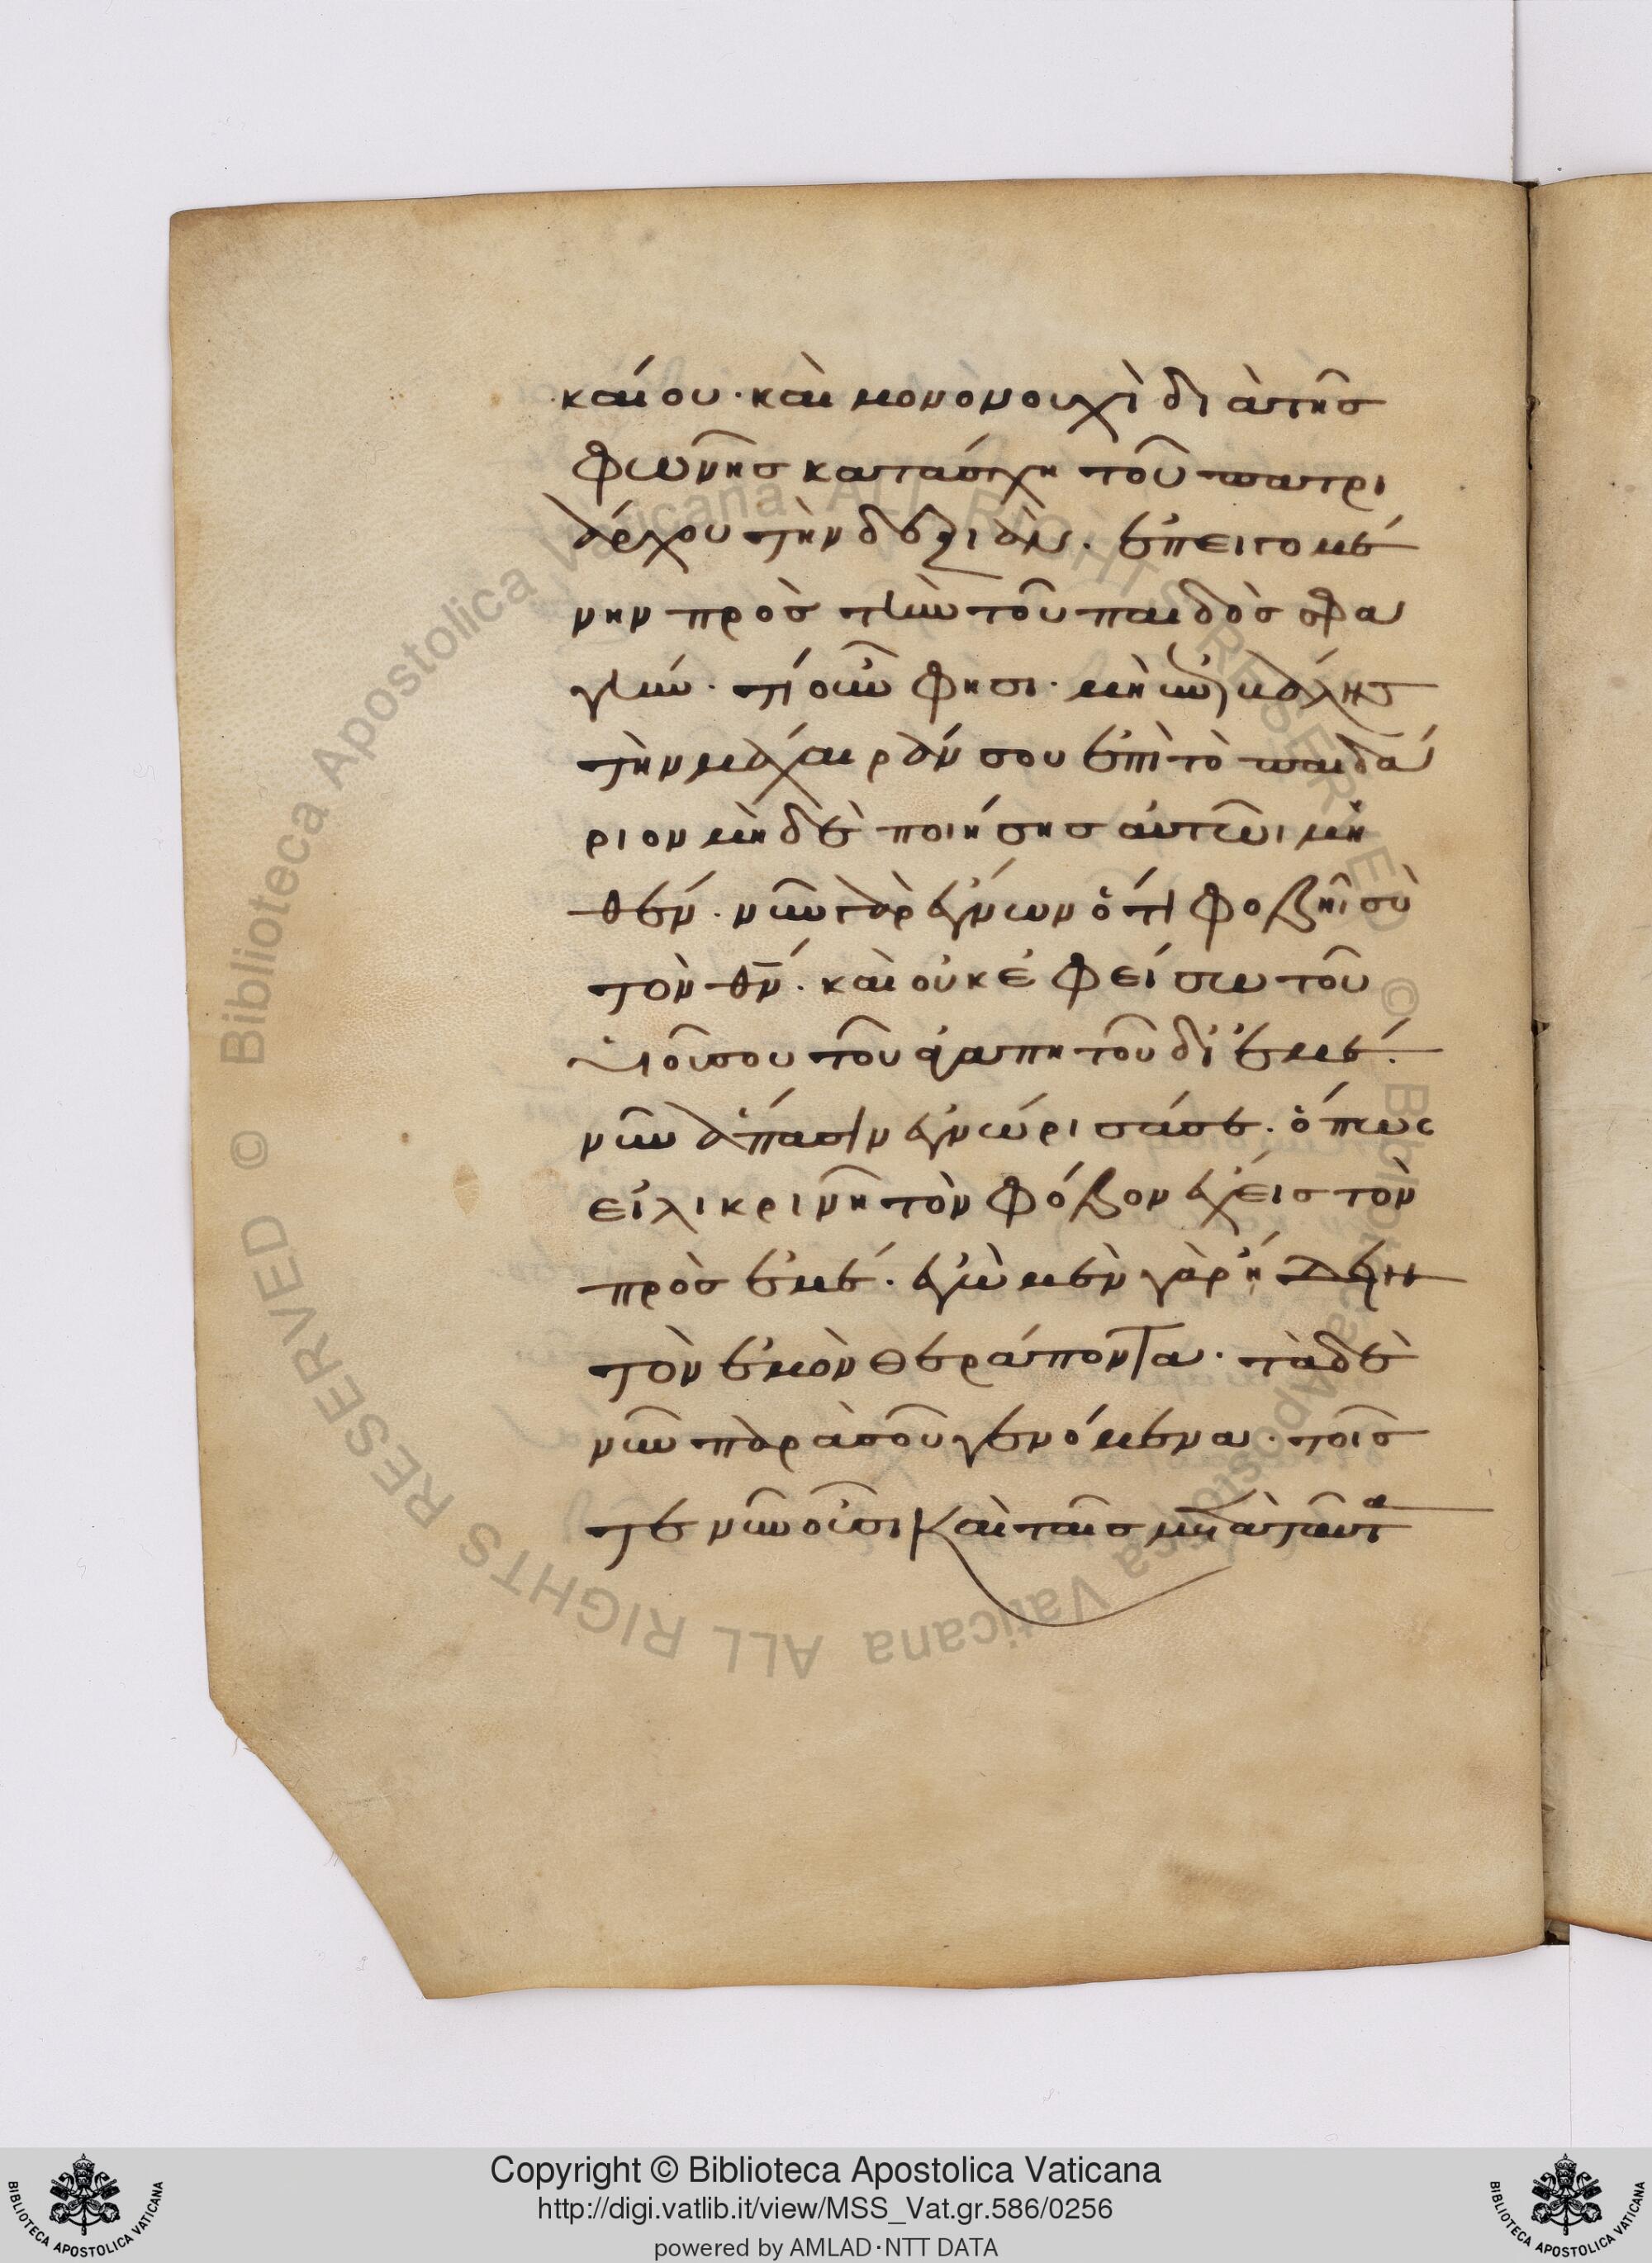 καίου· καὶ μονὸν οὐχὶ διὰ τῆς
φωνῆς κατάσχη τοῦ πατρι
άρχου τὴν δεξιὰν· ἐπειγομέ
νην πρὸς τὴν τοῦ παιδὸς σφα
γήν· τί οὖν φησι· μὴ ἐπιβάλης
τὴν μάχαιράν σου ἐπὶ τὸ παιδά
ριον μὴ δὲ ποιήσης αὐτῶι μη
θέν· νῦν γὰρ ἔγνων ὅτι φοβῆι σὺ
τὸν θν· καὶ οὐκ ἐφείσω τοῦ
υἱοῦ σου τοῦ ἀγαπητοῦ δι ἐμέ·
νῦν ἅπασιν ἐγνώρισά σε· ὅπως
εἰλικρινῆ τὸν φόβον ἔχεις τὸν
πρὸς ἐμέ· ἐγὼ μὲν γὰρ ἤδειν
τὸν ἐμὸν θεράποντα· τὰ δὲ
νῦν παρὰ σοῦ γενόμενα· τοῖς
τε νῦν οὖσι καὶ τοῖς μετὰ ταῦτα
Copyright © Biblioteca Apostolica Vaticana
http://digi.vatlib.it/view/MSS_Vat.gr.586/0256
powered by AMLAD·NTT DATA
BIBLIOTECA APOSTOLICA VATICANA
BIBLIOTECA APOSTOLICA VATICANA
© Biblioteca Apostolica Vaticana ALL RIGHTS RESERVED
© Biblioteca Apostolica Vaticana ALL RIGHTS RESERVED